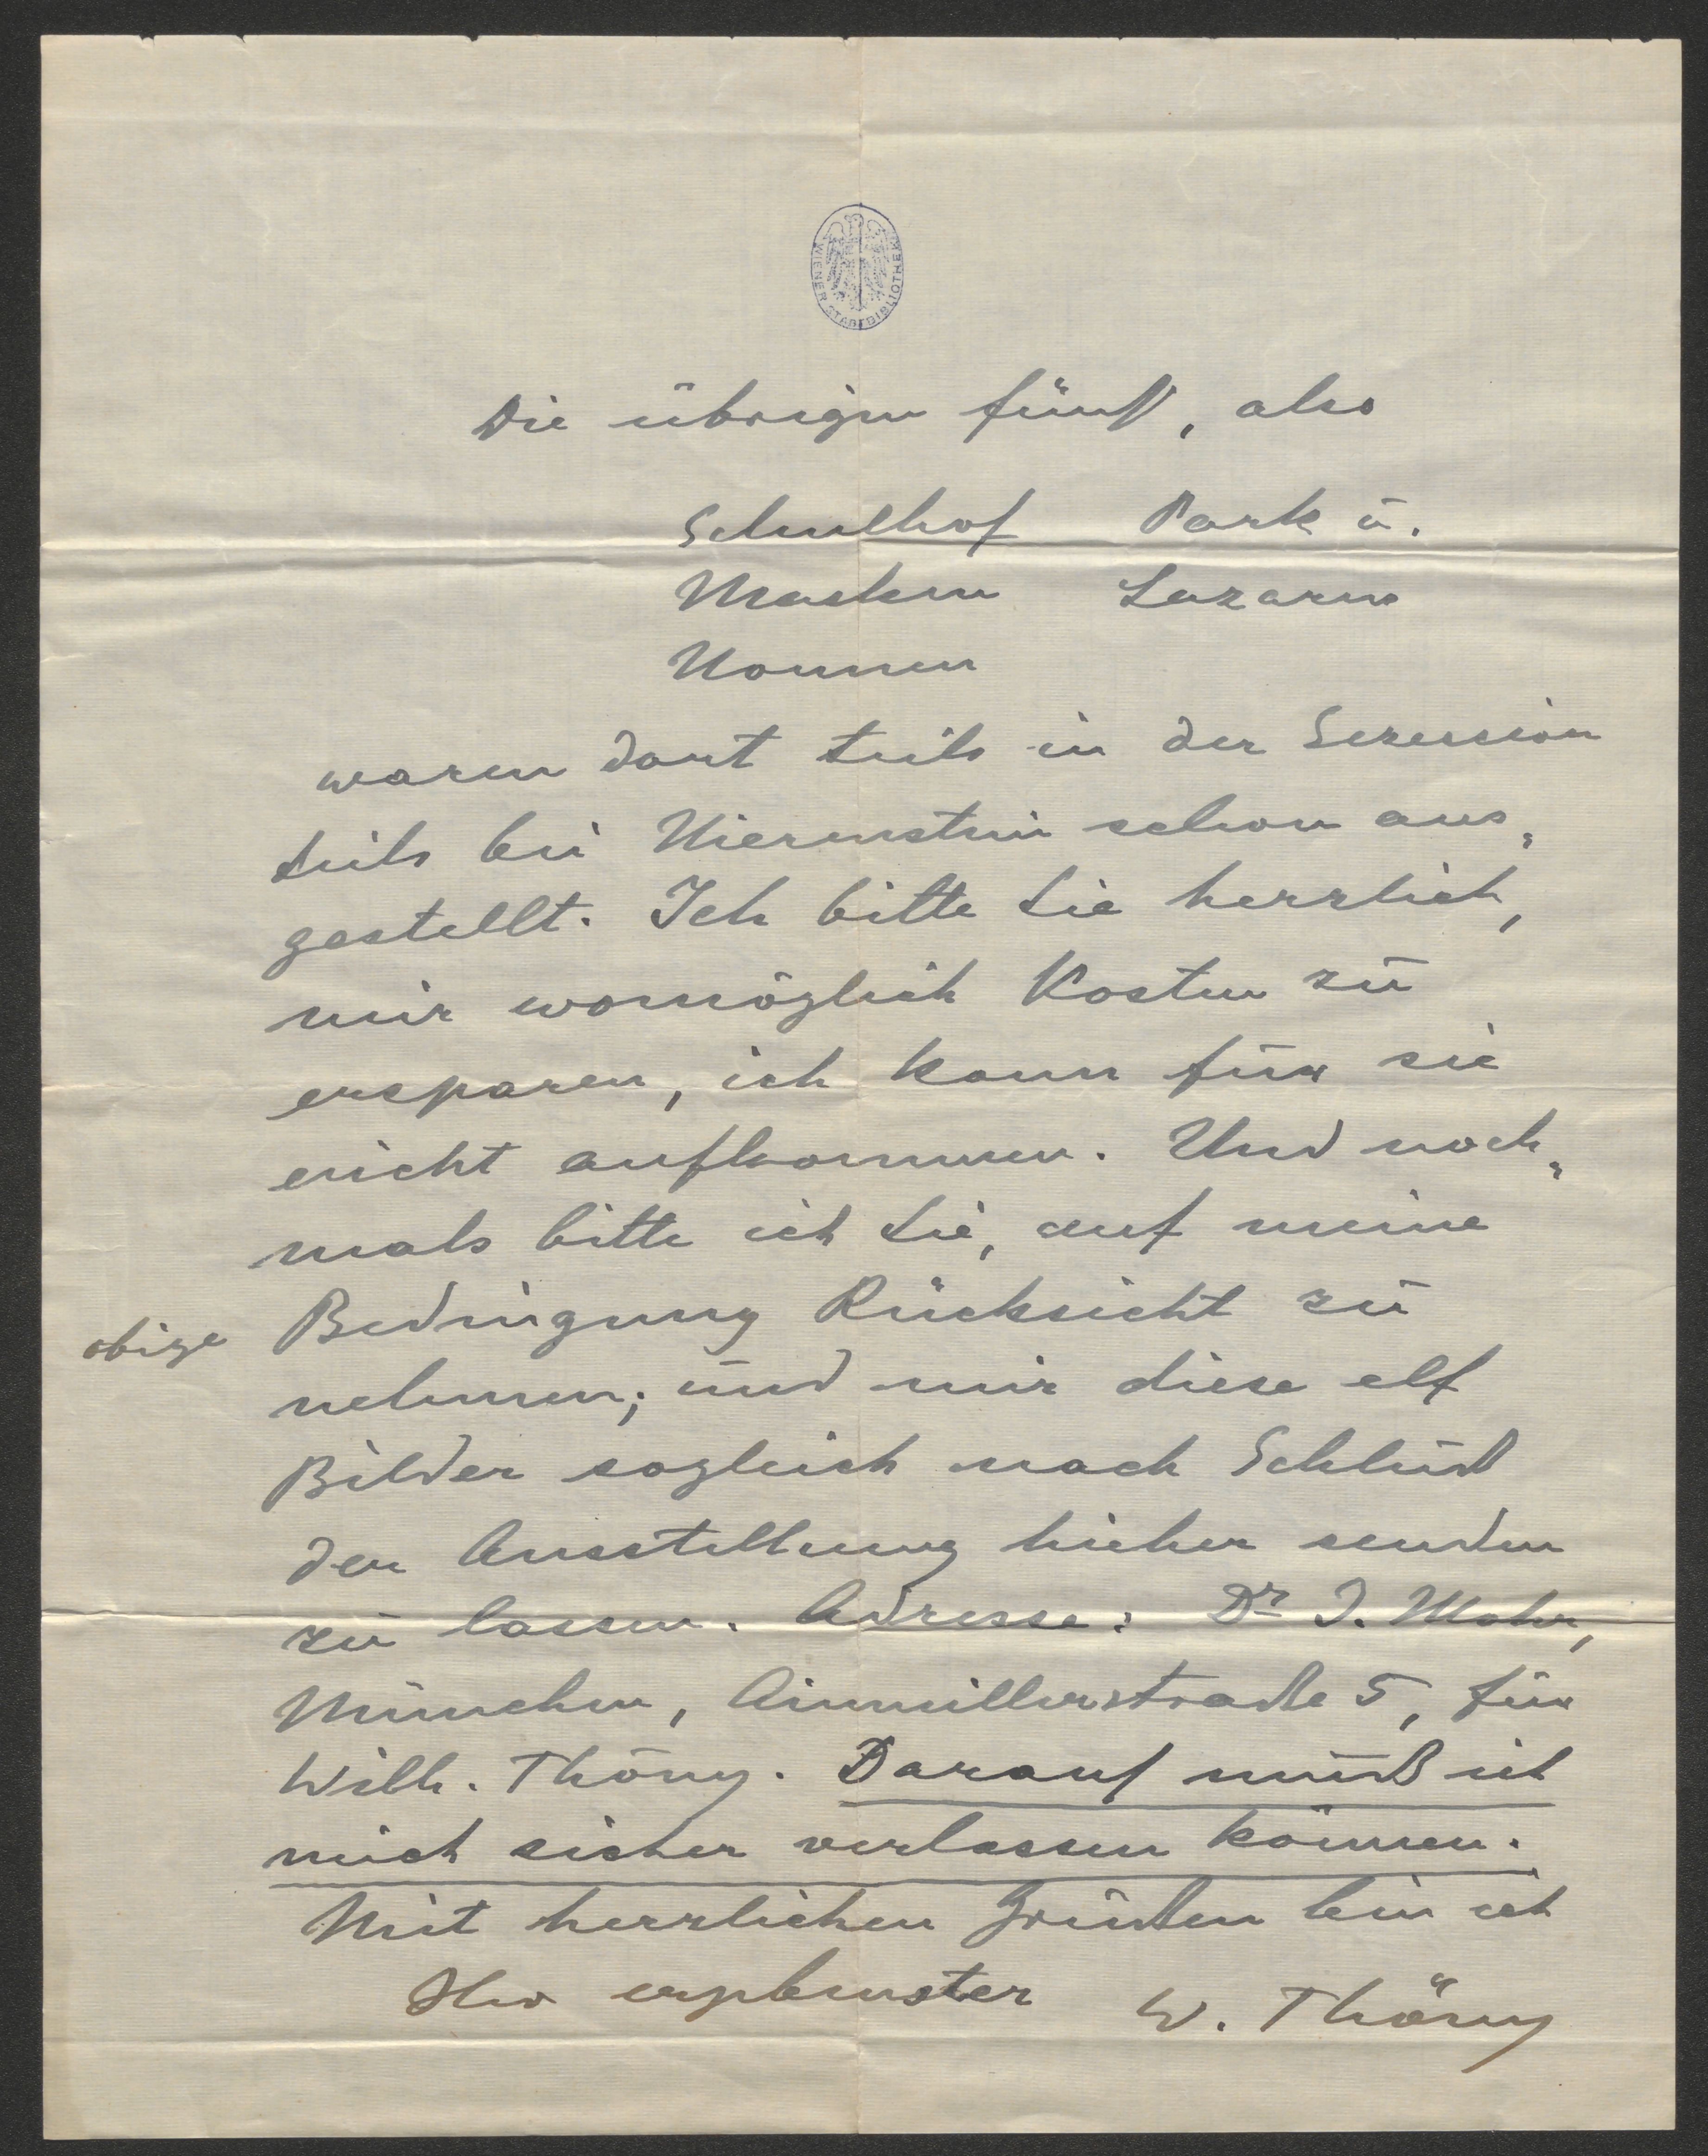 WIENER STADTBIBLIOTHEK
Die übrigen fünf, also
Schulhof Park u.
Masken Lazarus
Nonnen
waren dort teils in der Sezession
teils bei Nierenstein schon aus-
gestellt. Ich bitte Sie herzlich,
mir womöglich Kosten zu
ersparen, ich kann für sie
nicht aufkommen. Und noch-
mals bitte ich Sie, auf meine
obige Bedingung Rücksicht zu
nehmen; und mir diese elf
Bilder sogleich nach Schluß
der Ausstellung hieher senden
zu lassen. Adresse: Dr J. Mohr,
München, Ainmillerstraße 5, für
Wilh. Thöny. Darauf muß ich
mich sicher verlassen können.
Mit herzlichen Grüßen bin ich
Ihr ergebenster W. Thöny